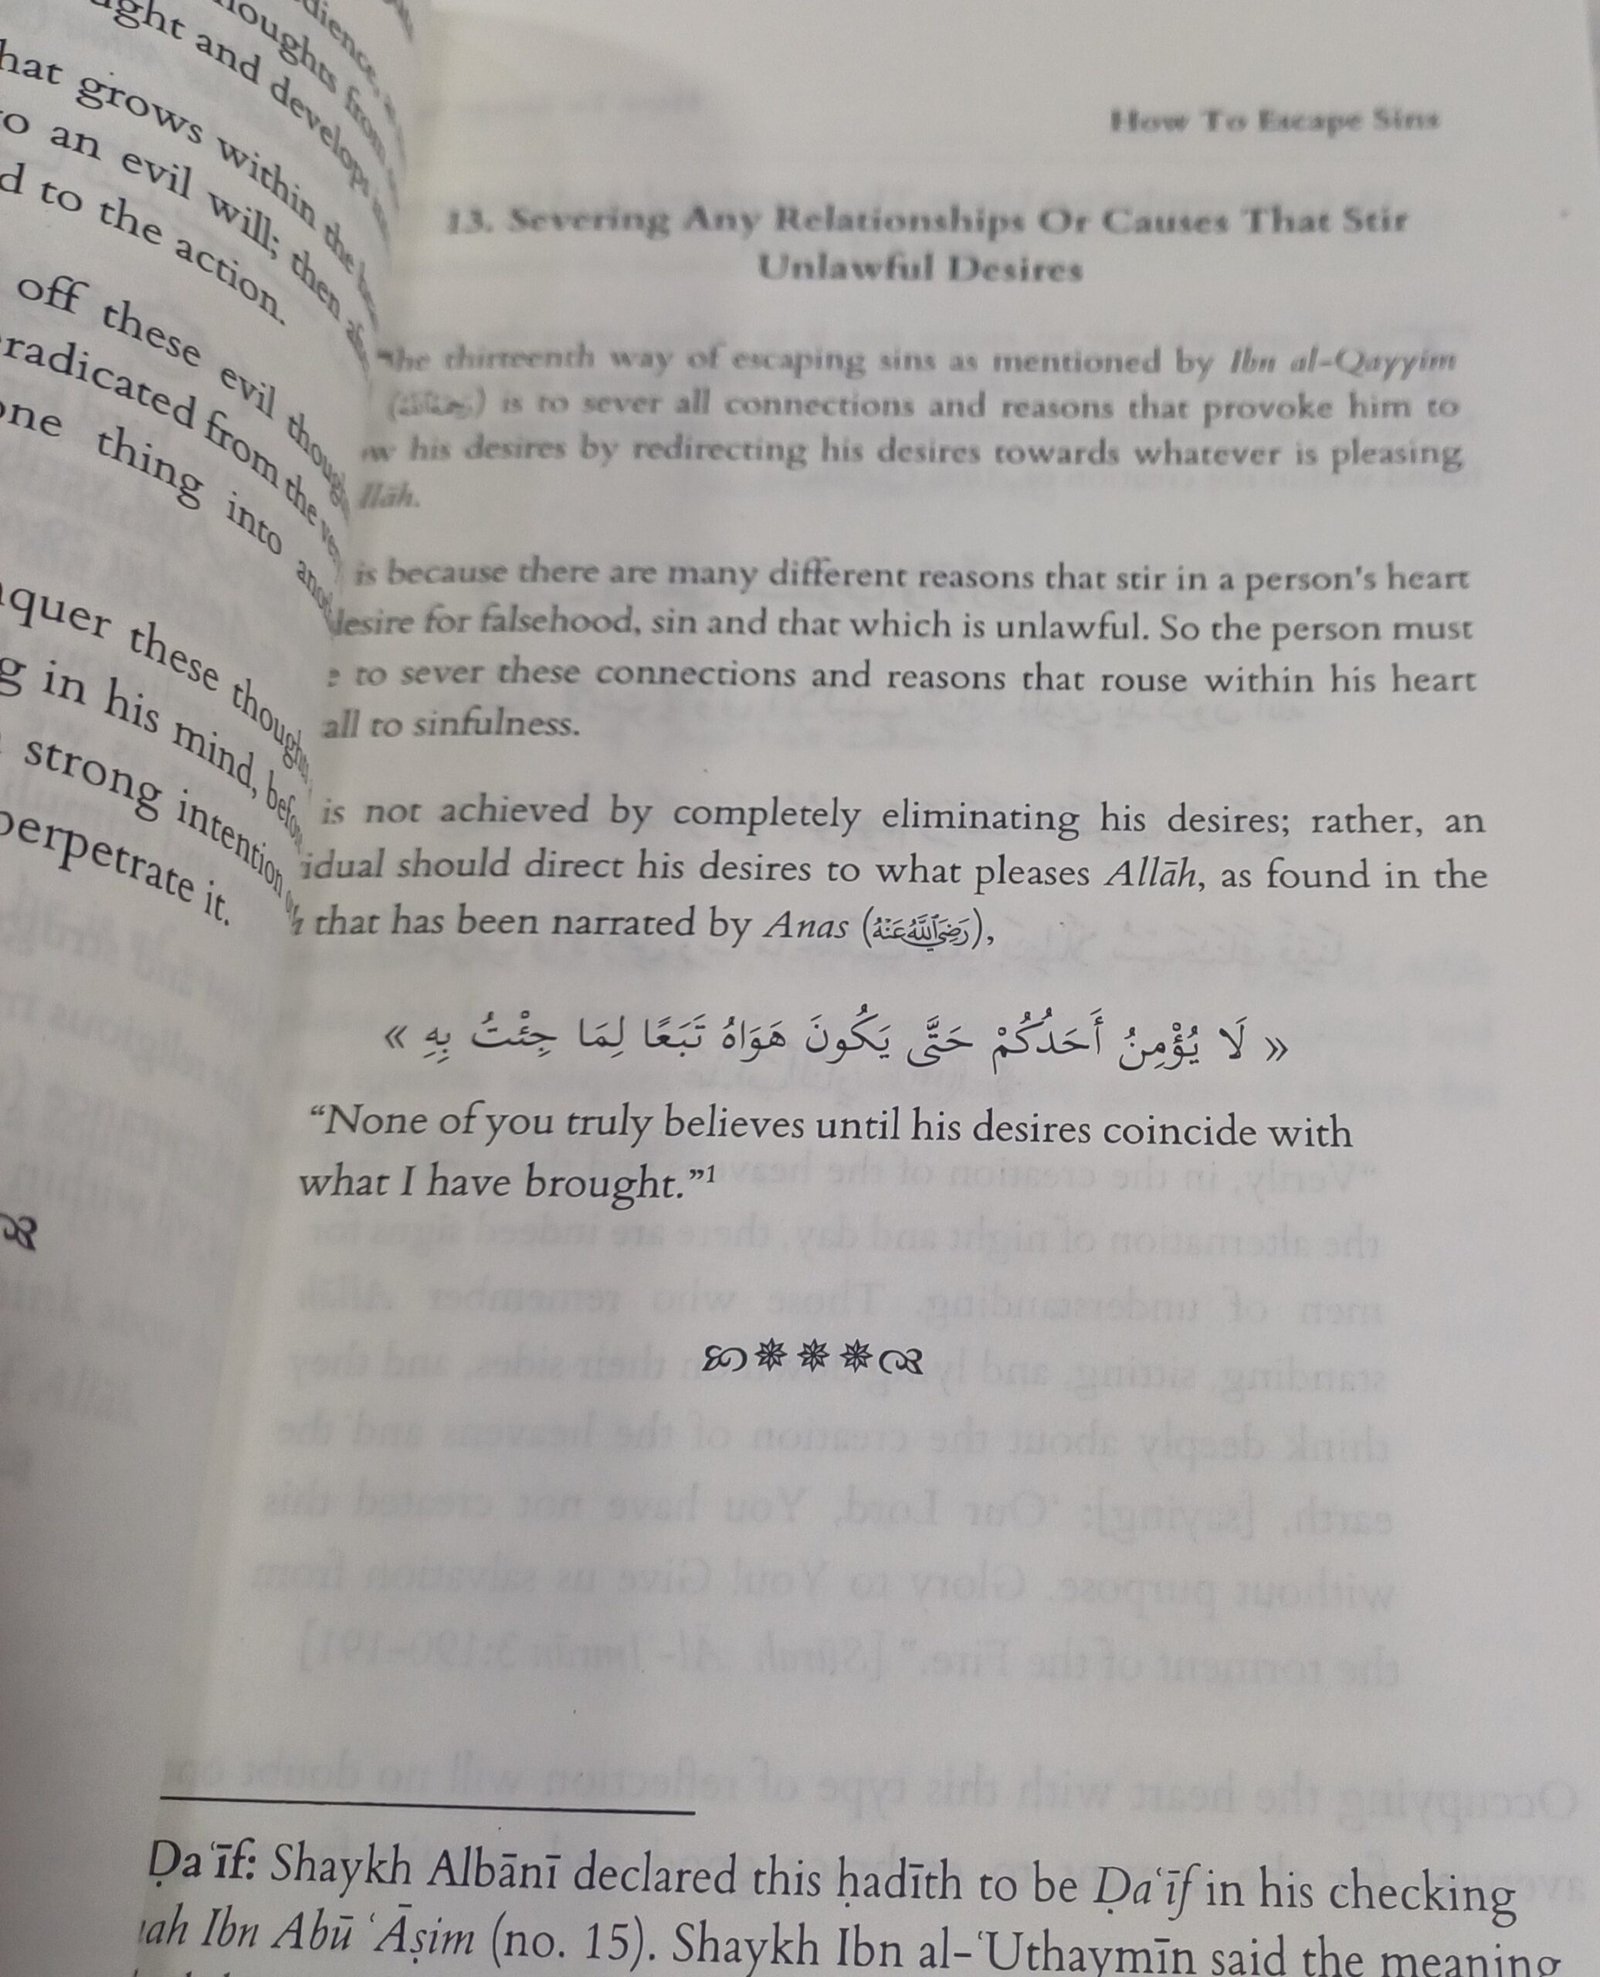 ght and develops
hat grows within the
o an evil will; then
d to the action.
off these evil
eradicated from the
one thing into
nquer these
g in his mind,
strong intention
perpetrate it.
How To Escape Sins
13. Severing Any Relationships Or Causes That Stir
Unlawful Desires
he thirteenth way of escaping sins as mentioned by Ibn al-Qayyim
is to sever all connections and reasons that provoke him to
ow his desires by redirecting his desires towards whatever is pleasing
llāh.
is because there are many different reasons that stir in a person's heart
desire for falsehood, sin and that which is unlawful. So the person must
e to sever these connections and reasons that rouse within his heart
all to sinfulness.
is not achieved by completely eliminating his desires; rather, an
idual should direct his desires to what pleases Allāh, as found in the
that has been narrated by Anas (رَضِيَ اللَّهُ عَنْهُ),
« لَا يُؤْمِنُ أَحَدُكُمْ حَتَّى يَكُونَ هَوَاهُ تَبَعًا لِمَا جِئْتُ بِهِ »
“None of you truly believes until his desires coincide with
what I have brought.”1
Ḍaʿīf: Shaykh Albānī declared this ḥadīth to be Ḍaʿīf in his checking
ah Ibn Abū ʿĀṣim (no. 15). Shaykh Ibn al-ʿUthaymīn said the meaning